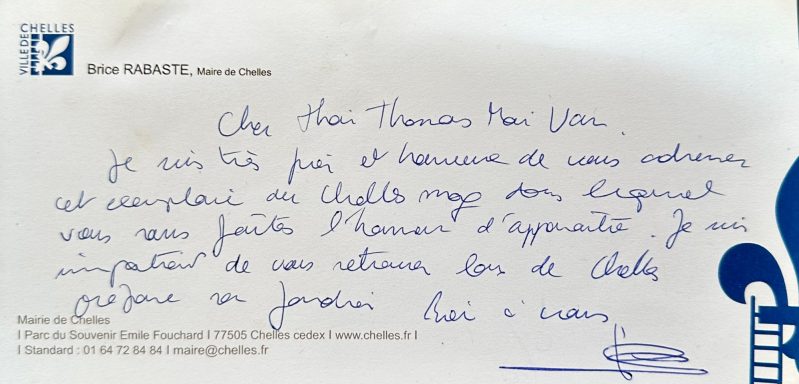 VILLE DE CHELLES
Brice RABASTE, Maire de Chelles
Cher Thai Thomas Mai Van.
Je suis très fier et honneur de vous adresser
cet exemplaire du Chelles mag dans lequel
vous nous faîtes l'honneur d'apparaître. Je suis
impatient de vous retrouver lors de Chelles
prépare son Merci à vous
Mairie de Chelles
I Parc du Souvenir Emile Fouchard I 77505 Chelles cedex I www.chelles.fr I
I Standard : 01 64 72 84 84 I maire@chelles.fr